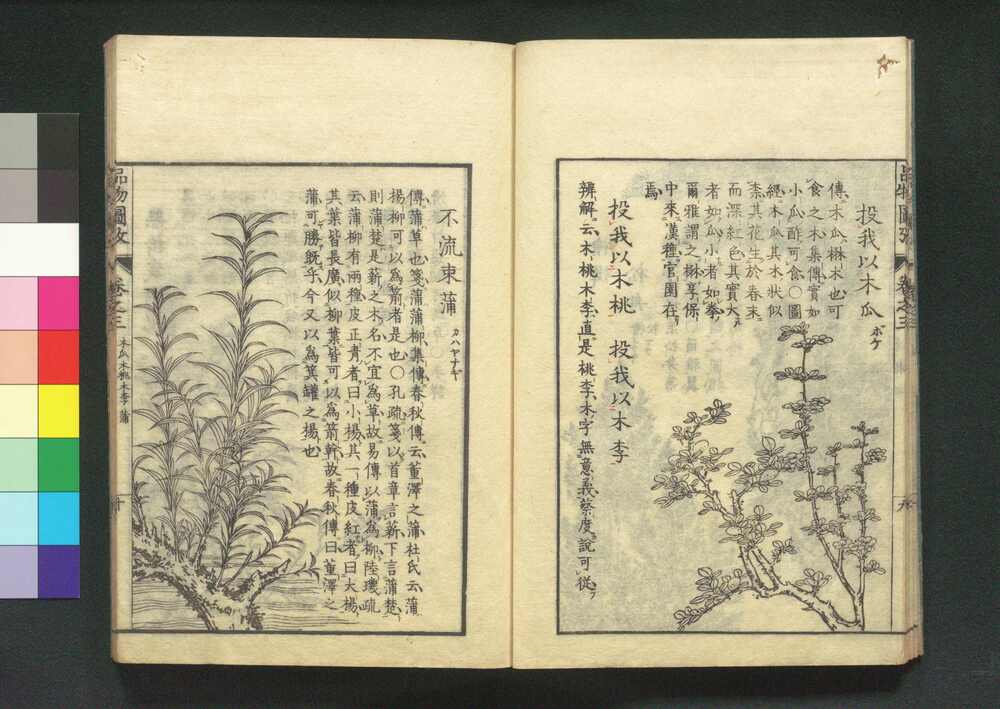 投我以木瓜 ボケ
傳木瓜楙木也可
食之木集傳實如
小瓜酢可食〇圖
經木瓜其木狀似
柰其花生於春末
而深紅色其實大
者如瓜小者如拳
爾雅謂之楙享保
中來漢種官園在
焉
投我以木桃 投我以木李
辨解云木桃木李直是桃李木字無意義蔡度說可從
品物圖攷 卷之三
九
不流束蒲 カハヤナギ
傳蒲草也箋蒲蒲柳集傳春秋傳云董澤之蒲杜氏云蒲
楊柳可以為箭者是也〇孔疏箋以首章言薪下言蒲楚
則蒲楚是薪之木名不宜為草故易傳以蒲為柳陸璣疏
云蒲柳有兩種皮正青者曰小楊其一種皮紅者曰大楊
其葉皆長廣似柳葉皆可以為箭幹故春秋傳曰董澤之
蒲可勝既乎今又以為箕罐之楊也
品物圖攷 卷之三 木瓜木桃木李 蒲
十